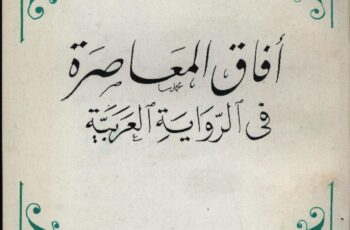 أفاق المعاصرة
في الرّواية العربيّة